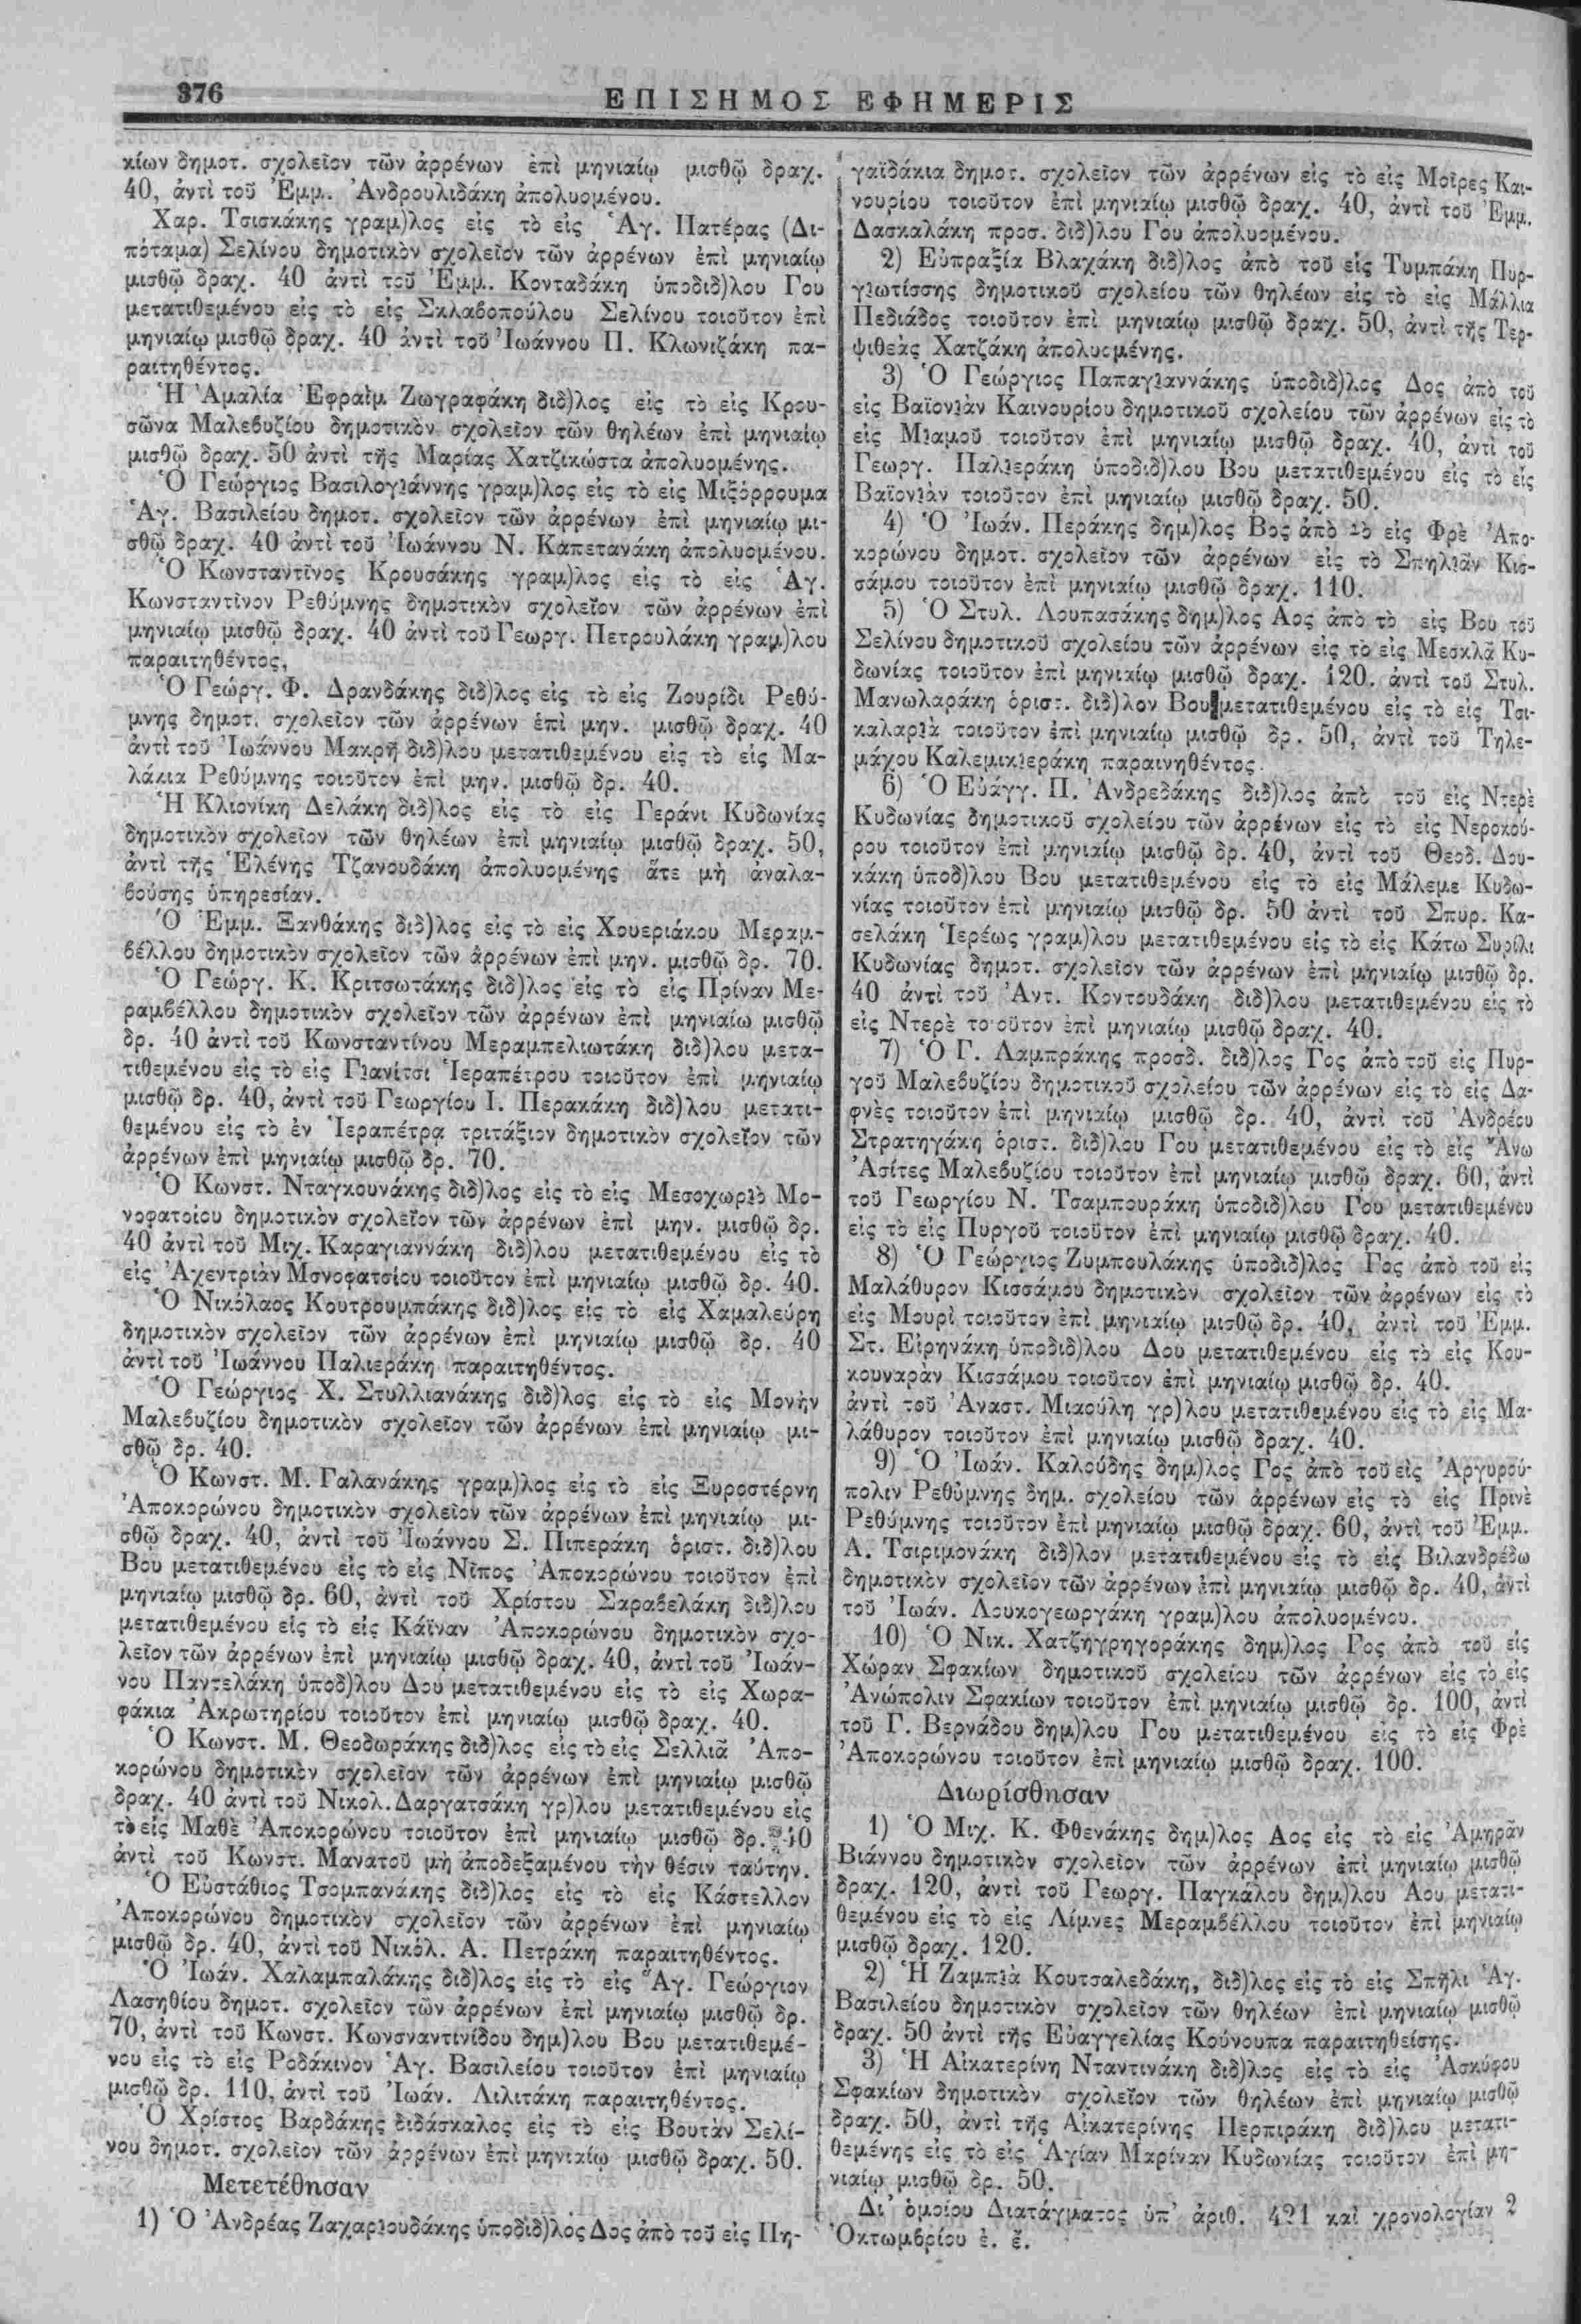 376
ΕΠΙΣΗΜΟΣ ΕΦΗΜΕΡΙΣ
κίων δημοτ. σχολεῖον τῶν ἀρρένων ἐπὶ μηνιαίῳ μισθῷ δραχ.
40, ἀντὶ τοῦ Ἐμμ. Ἀνδρουλιδάκη ἀπολυομένου.
Χαρ. Τσισκάκης γραμ)λος εἰς τὸ εἰς Ἁγ. Πατέρας (Δι-
πόταμα) Σελίνου δημοτικὸν σχολεῖον τῶν ἀρρένων ἐπὶ μηνιαίῳ
μισθῷ δραχ. 40 ἀντὶ τοῦ Ἐμμ. Κονταδάκη ὑποδιδ)λου Γου
μετατιθεμένου εἰς τὸ εἰς Σκλαβοπούλου Σελίνου τοιοῦτον ἐπὶ
μηνιαίῳ μισθῷ δραχ. 40 ἀντὶ τοῦ Ἰωάννου Π. Κλωνιζάκη πα-
ραιτηθέντος.
Ἡ Ἀμαλία Ἐφραὶμ Ζωγραφάκη διδ)λος εἰς τὸ εἰς Κρου-
σῶνα Μαλεβυζίου δημοτικὸν σχολεῖον τῶν θηλέων ἐπὶ μηνιαίῳ
μισθῷ δραχ. 50 ἀντὶ τῆς Μαρίας Χατζικώστα ἀπολυομένης.
Ὁ Γεώργιος Βασιλογιάννης γραμ)λος εἰς τὸ εἰς Μιξόρρουμα
Ἁγ. Βασιλείου δημοτ. σχολεῖον τῶν ἀρρένων ἐπὶ μηνιαίῳ μι-
σθῷ δραχ. 40 ἀντὶ τοῦ Ἰωάννου Ν. Καπετανάκη ἀπολυομένου.
Ὁ Κωνσταντῖνος Κρουσάκης γραμ)λος εἰς τὸ εἰς Ἁγ.
Κωνσταντῖνον Ρεθύμνης δημοτικὸν σχολεῖον τῶν ἀρρένων ἐπὶ
μηνιαίῳ μισθῷ δραχ. 40 ἀντὶ τοῦ Γεωργ. Πετρουλάκη γραμ)λου
παραιτηθέντος,
Ὁ Γεώργ. Φ. Δρανδάκης διδ)λος εἰς τὸ εἰς Ζουρίδι Ρεθύ-
μνης δημοτ. σχολεῖον τῶν ἀρρένων ἐπὶ μην. μισθῷ δραχ. 40
ἀντὶ τοῦ Ἰωάννου Μακρῆ διδ)λου μετατιθεμένου εἰς τὸ εἰς Μα-
λάκια Ρεθύμνης τοιοῦτον ἐπὶ μην. μισθῷ δρ. 40.
Ἡ Κλιονίκη Δελάκη διδ)λος εἰς τὸ εἰς Γεράνι Κυδωνίας
δημοτικὸν σχολεῖον τῶν θηλέων ἐπὶ μηνιαίῳ μισθῷ δραχ. 50,
ἀντὶ τῆς Ἑλένης Τζανουδάκη ἀπολυομένης ἅτε μὴ ἀναλα-
βούσης ὑπηρεσίαν.
Ὁ Ἐμμ. Ξανθάκης διδ)λος εἰς τὸ εἰς Χουεριάκου Μεραμ-
βέλλου δημοτικὸν σχολεῖον τῶν ἀρρένων ἐπὶ μην. μισθῷ δρ. 70.
Ὁ Γεώργ. Κ. Κριτσωτάκης διδ)λος εἰς τὸ εἰς Πρίναν Με-
ραμβέλλου δημοτικὸν σχολεῖον τῶν ἀρρένων ἐπὶ μηνιαίω μισθῷ
δρ. 40 ἀντὶ τοῦ Κωνσταντίνου Μεραμπελιωτάκη διδ)λου μετα-
τιθεμένου εἰς τὸ εἰς Γιανίτσι Ἱεραπέτρου τοιοῦτον ἐπὶ μηνιαίῳ
μισθῷ δρ. 40, ἀντὶ τοῦ Γεωργίου Ι. Περακάκη διδ)λου μετατι-
θεμένου εἰς τὸ ἐν Ἱεραπέτρᾳ τριτάξιον δημοτικὸν σχολεῖον τῶν
ἀρρένων ἐπὶ μηνιαίῳ μισθῷ δρ. 70.
Ὁ Κωνστ. Νταγκουνάκης διδ)λος εἰς τὸ εἰς Μεσοχωριὸ Μο-
νοφατσίου δημοτικὸν σχολεῖον τῶν ἀρρένων ἐπὶ μην. μισθῷ δρ.
40 ἀντὶ τοῦ Μιχ. Καραγιαννάκη διδ)λου μετατιθεμένου εἰς τὸ
εἰς Ἀχεντριὰν Μονοφατσίου τοιοῦτον ἐπὶ μηνιαίῳ μισθῷ δρ. 40.
Ὁ Νικόλαος Κουτρουμπάκης διδ)λος εἰς τὸ εἰς Χαμαλεύρη
δημοτικὸν σχολεῖον τῶν ἀρρένων ἐπὶ μηνιαίῳ μισθῷ δρ. 40
ἀντὶ τοῦ Ἰωάννου Παλιεράκη παραιτηθέντος.
Ὁ Γεώργιος Χ. Στυλλιανάκης διδ)λος εἰς τὸ εἰς Μονὴν
Μαλεβυζίου δημοτικὸν σχολεῖον τῶν ἀρρένων ἐπὶ μηνιαίῳ μι-
σθῷ δρ. 40.
Ὁ Κωνστ. Μ. Γαλανάκης γραμ)λος εἰς τὸ εἰς Ξυροστέρνη
Ἀποκορώνου δημοτικὸν σχολεῖον τῶν ἀρρένων ἐπὶ μηνιαίῳ μι-
σθῷ δραχ. 40, ἀντὶ τοῦ Ἰωάννου Σ. Πιπεράκη ὁριστ. διδ)λου
Βου μετατιθεμένου εἰς τὸ εἰς Νῖπος Ἀποκορώνου τοιοῦτον ἐπὶ
μηνιαίῳ μισθῷ δρ. 60, ἀντὶ τοῦ Χρίστου Σαραβελάκη διδ)λου
μετατιθεμένου εἰς τὸ εἰς Κάϊναν Ἀποκορώνου δημοτικὸν σχο-
λεῖον τῶν ἀρρένων ἐπὶ μηνιαίῳ μισθῷ δραχ. 40, ἀντὶ τοῦ Ἰωάν-
νου Παντελάκη ὑποδ)λου Δου μετατιθεμένου εἰς τὸ εἰς Χωρα-
φάκια Ἀκρωτηρίου τοιοῦτον ἐπὶ μηνιαίῳ μισθῷ δραχ. 40.
Ὁ Κωνστ. Μ. Θεοδωράκης διδ)λος εἰς τὸ εἰς Σελλιᾶ Ἀπο-
κορώνου δημοτικὸν σχολεῖον τῶν ἀρρένων ἐπὶ μηνιαίῳ μισθῷ
δραχ. 40 ἀντὶ τοῦ Νικολ. Δαργατσάκη γρ)λου μετατιθεμένου εἰς
τὸ εἰς Μαθὲ Ἀποκορώνου τοιοῦτον ἐπὶ μηνιαίῳ μισθῷ δρ. 40
ἀντὶ τοῦ Κωνστ. Μανατοῦ μὴ ἀποδεξαμένου τὴν θέσιν ταύτην.
Ὁ Εὐστάθιος Τσομπανάκης διδ)λος εἰς τὸ εἰς Κάστελλον
Ἀποκορώνου δημοτικὸν σχολεῖον τῶν ἀρρένων ἐπὶ μηνιαίῳ
μισθῷ δρ. 40, ἀντὶ τοῦ Νικόλ. Α. Πετράκη παραιτηθέντος.
Ὁ Ἰωάν. Χαλαμπαλάκης διδ)λος εἰς τὸ εἰς Ἅγ. Γεώργιον
Λασηθίου δημοτ. σχολεῖον τῶν ἀρρένων ἐπὶ μηνιαίῳ μισθῷ δρ.
70, ἀντὶ τοῦ Κωνστ. Κωνσναντινίδου δημ)λου Βου μετατιθεμέ-
νου εἰς τὸ εἰς Ροδάκινον Ἁγ. Βασιλείου τοιοῦτον ἐπὶ μηνιαίῳ
μισθῷ δρ. 110, ἀντὶ τοῦ Ἰωάν. Λιλιτάκη παραιτηθέντος.
Ὁ Χρίστος Βαρδάκης διδάσκαλος εἰς τὸ εἰς Βουτὰν Σελί-
νου δημοτ. σχολεῖον τῶν ἀρρένων ἐπὶ μηνιαίῳ μισθῷ δραχ. 50.
Μετετέθησαν
1) Ὁ Ἀνδρέας Ζαχαριουδάκης ὑποδιδ)λος Δος ἀπὸ τοῦ εἰς Πη-
γαϊδάκια δημοτ. σχολεῖον τῶν ἀρρένων εἰς τὸ εἰς Μοῖρες Και-
νουρίου τοιοῦτον ἐπὶ μηνιαίῳ μισθῷ δραχ. 40, ἀντὶ τοῦ Ἐμμ.
Δασκαλάκη προσ. διδ)λου Γου ἀπολυομένου.
2) Εὐπραξία Βλαχάκη διδ)λος ἀπὸ τοῦ εἰς Τυμπάκη Πυρ-
γιωτίσσης δημοτικοῦ σχολείου τῶν θηλέων εἰς τὸ εἰς Μάλλια
Πεδιάδος τοιοῦτον ἐπὶ μηνιαίῳ μισθῷ δραχ. 50, ἀντὶ τῆς Τερ-
ψιθεὰς Χατζάκη ἀπολυομένης.
3) Ὁ Γεώργιος Παπαγιαννάκης ὑποδιδ)λος Δος ἀπὸ τοῦ
εἰς Βαϊονιὰν Καινουρίου δημοτικοῦ σχολείου τῶν ἀρρένων εἰς τὸ
εἰς Μιαμοῦ τοιοῦτον ἐπὶ μηνιαίῳ μισθῷ δραχ. 40, ἀντὶ τοῦ
Γεωργ. Παλιεράκη ὑποδιδ)λου Βου μετατιθεμένου εἰς τὸ εἰς
Βαϊονιὰν τοιοῦτον ἐπὶ μηνιαίῳ μισθῷ δραχ. 50.
4) Ὁ Ἰωάν. Περάκης δημ)λος Βος ἀπὸ τὸ εἰς Φρὲ Ἀπο-
κορώνου δημοτ. σχολεῖον τῶν ἀρρένων εἰς τὸ Σπηλιὰν Κισ-
σάμου τοιοῦτον ἐπὶ μηνιαίῳ μισθῷ δραχ. 110.
5) Ὁ Στυλ. Λουπασάκης δημ)λος Αος ἀπὸ τὸ εἰς Βου τοῦ
Σελίνου δημοτικοῦ σχολείου τῶν ἀρρένων εἰς τὸ εἰς Μεσκλᾶ Κυ-
δωνίας τοιοῦτον ἐπὶ μηνιαίῳ μισθῷ δραχ. 120. ἀντὶ τοῦ Στυλ.
Μανωλαράκη ὁριστ. διδ)λον Βου μετατιθεμένου εἰς τὸ εἰς Τσι-
καλαριὰ τοιοῦτον ἐπὶ μηνιαίῳ μισθῷ δρ. 50, ἀντὶ τοῦ Τηλε-
μάχου Καλεμικιεράκη παραινηθέντος.
6) Ὁ Εὐάγγ. Π. Ἀνδρεδάκης διδ)λος ἀπὸ τοῦ εἰς Ντερὲ
Κυδωνίας δημοτικοῦ σχολείου τῶν ἀρρένων εἰς τὸ εἰς Νεροκού-
ρου τοιοῦτον ἐπὶ μηνιαίῳ μισθῷ δρ. 40, ἀντὶ τοῦ Θεοδ. Δου-
κάκη ὑποδ)λου Βου μετατιθεμένου εἰς τὸ εἰς Μάλεμε Κυδω-
νίας τοιοῦτον ἐπὶ μηνιαίῳ μισθῷ δρ. 50 ἀντὶ τοῦ Σπυρ. Κα-
σελάκη Ἱερέως γραμ)λου μετατιθεμένου εἰς τὸ εἰς Κάτω Συρίλι
Κυδωνίας δημοτ. σχολεῖον τῶν ἀρρένων ἐπὶ μηνιαίῳ μισθῷ δρ.
40 ἀντὶ τοῦ Ἀντ. Κοντουδάκη διδ)λου μετατιθεμένου εἰς τὸ
εἰς Ντερὲ τοιοῦτον ἐπὶ μηνιαίῳ μισθῷ δραχ. 40.
7) Ὁ Γ. Λαμπράκης προσδ. διδ)λος Γος ἀπὸ τοῦ εἰς Πυρ-
γοῦ Μαλεβυζίου δημοτικοῦ σχολείου τῶν ἀρρένων εἰς τὸ εἰς Δα-
φνὲς τοιοῦτον ἐπὶ μηνιαίῳ μισθῷ δρ. 40, ἀντὶ τοῦ Ἀνδρέου
Στρατηγάκη ὁριστ. διδ)λου Γου μετατιθεμένου εἰς τὸ εἰς Ἄνω
Ἀσίτες Μαλεβυζίου τοιοῦτον ἐπὶ μηνιαίῳ μισθῷ δραχ. 60, ἀντὶ
τοῦ Γεωργίου Ν. Τσαμπουράκη ὑποδιδ)λου Γου μετατιθεμένου
εἰς τὸ εἰς Πυργοῦ τοιοῦτον ἐπὶ μηνιαίῳ μισθῷ δραχ. 40.
8) Ὁ Γεώργιος Ζυμπουλάκης ὑποδιδ)λος Γος ἀπὸ τοῦ εἰς
Μαλάθυρον Κισσάμου δημοτικὸν σχολεῖον τῶν ἀρρένων εἰς τὸ
εἰς Μουρὶ τοιοῦτον ἐπὶ μηνιαίῳ μισθῷ δρ. 40, ἀντὶ τοῦ Ἐμμ.
Στ. Εἰρηνάκη ὑποδιδ)λου Δου μετατιθεμένου εἰς τὸ εἰς Κου-
κουναρὰν Κισσάμου τοιοῦτον ἐπὶ μηνιαίῳ μισθῷ δρ. 40.
ἀντὶ τοῦ Ἀναστ. Μιαούλη γρ)λου μετατιθεμένου εἰς τὸ εἰς Μα-
λάθυρον τοιοῦτον ἐπὶ μηνιαίῳ μισθῷ δραχ. 40.
9) Ὁ Ἰωάν. Καλούδης δημ)λος Γος ἀπὸ τοῦ εἰς Ἀργυρού-
πολιν Ρεθύμνης δημ. σχολείου τῶν ἀρρένων εἰς τὸ εἰς Πρινὲ
Ρεθύμνης τοιοῦτον ἐπὶ μηνιαίῳ μισθῷ δραχ. 60, ἀντὶ τοῦ Ἐμμ.
Α. Τσιριμονάκη διδ)λον μετατιθεμένου εἰς τὸ εἰς Βιλανδρέδω
δημοτικὸν σχολεῖον τῶν ἀρρένων ἐπὶ μηνιαίῳ μισθῷ δρ. 40, ἀντὶ
τοῦ Ἰωάν. Λουκογεωργάκη γραμ)λου ἀπολυομένου.
10) Ὁ Νικ. Χατζηγρηγοράκης δημ)λος Γος ἀπὸ τοῦ εἰς
Χώραν Σφακίων δημοτικοῦ σχολείου τῶν ἀρρένων εἰς τὸ εἰς
Ἀνώπολιν Σφακίων τοιοῦτον ἐπὶ μηνιαίῳ μισθῷ δρ. 100, ἀντὶ
τοῦ Γ. Βερνάδου δημ)λου Γου μετατιθεμένου εἰς τὸ εἰς Φρὲ
Ἀποκορώνου τοιοῦτον ἐπὶ μηνιαίῳ μισθῷ δραχ. 100.
Διωρίσθησαν
1) Ὁ Μιχ. Κ. Φθενάκης δημ)λος Αος εἰς τὸ εἰς Ἀμηρᾶν
Βιάννου δημοτικὸν σχολεῖον τῶν ἀρρένων ἐπὶ μηνιαίῳ μισθῷ
δραχ. 120, ἀντὶ τοῦ Γεωργ. Παγκάλου δημ)λου Αου μετατι-
θεμένου εἰς τὸ εἰς Λίμνες Μεραμβέλλου τοιοῦτον ἐπὶ μηνιαίῳ
μισθῷ δραχ. 120.
2) Ἡ Ζαμπιὰ Κουτσαλεδάκη, διδ)λος εἰς τὸ εἰς Σπήλι Ἁγ.
Βασιλείου δημοτικὸν σχολεῖον τῶν θηλέων ἐπὶ μηνιαίῳ μισθῷ
δραχ. 50 ἀντὶ τῆς Εὐαγγελίας Κούνουπα παραιτηθείσης.
3) Ἡ Αἰκατερίνη Νταντινάκη διδ)λος εἰς τὸ εἰς Ἀσκύφου
Σφακίων δημοτικὸν σχολεῖον τῶν θηλέων ἐπὶ μηνιαίῳ μισθῷ
δραχ. 50, ἀντὶ τῆς Αἰκατερίνης Περπιράκη διδ)λου μετατι-
θεμένης εἰς τὸ εἰς Ἁγίαν Μαρίναν Κυδωνίας τοιοῦτον ἐπὶ μη-
νιαίῳ μισθῷ δρ. 50.
Δι' ὁμοίου Διατάγματος ὑπ' ἀριθ. 421 καὶ χρονολογίαν 2
Ὀκτωμβρίου ἐ. ἔ.